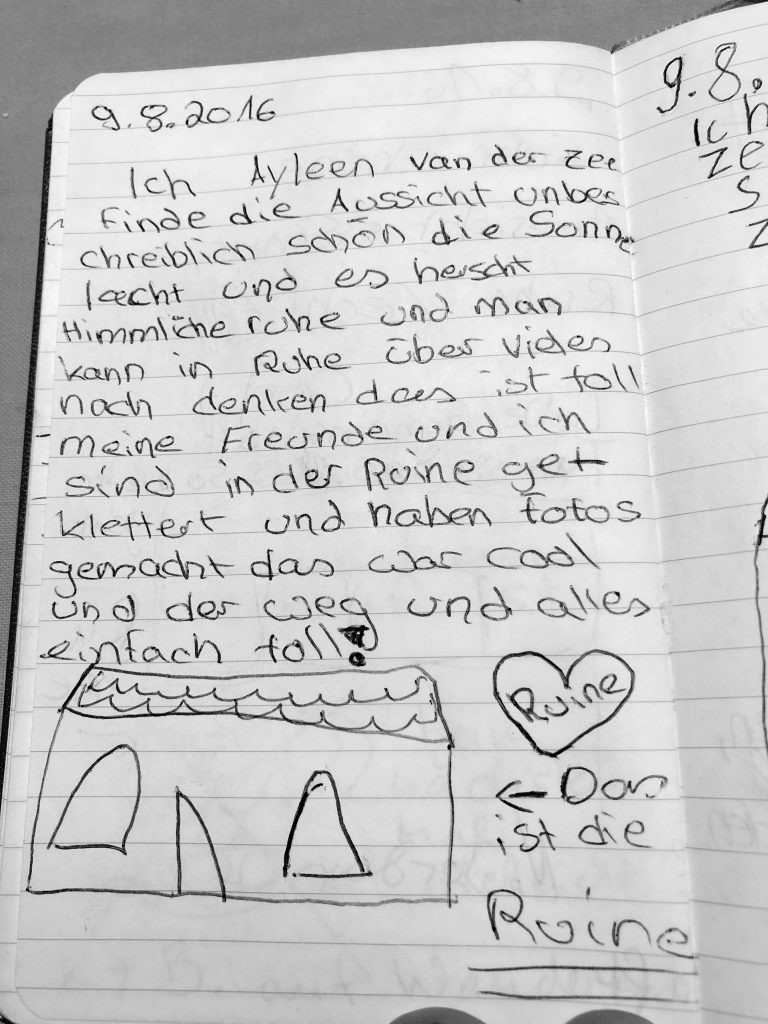 9.8.2016
Ich Ayleen van der Zee
finde die Aussicht unbes
chreiblich schön die Sonne
lacht und es herscht
Himmliche ruhe und man
kann in Ruhe über vieles
nach denken das ist toll
meine Freunde und ich
sind in der Ruine get
klettert und haben fotos
gemacht das war cool
und der weg und alles
einfach toll!
Ruine
← Das
ist die
Ruine
9.8.
Ich
ze
s
z